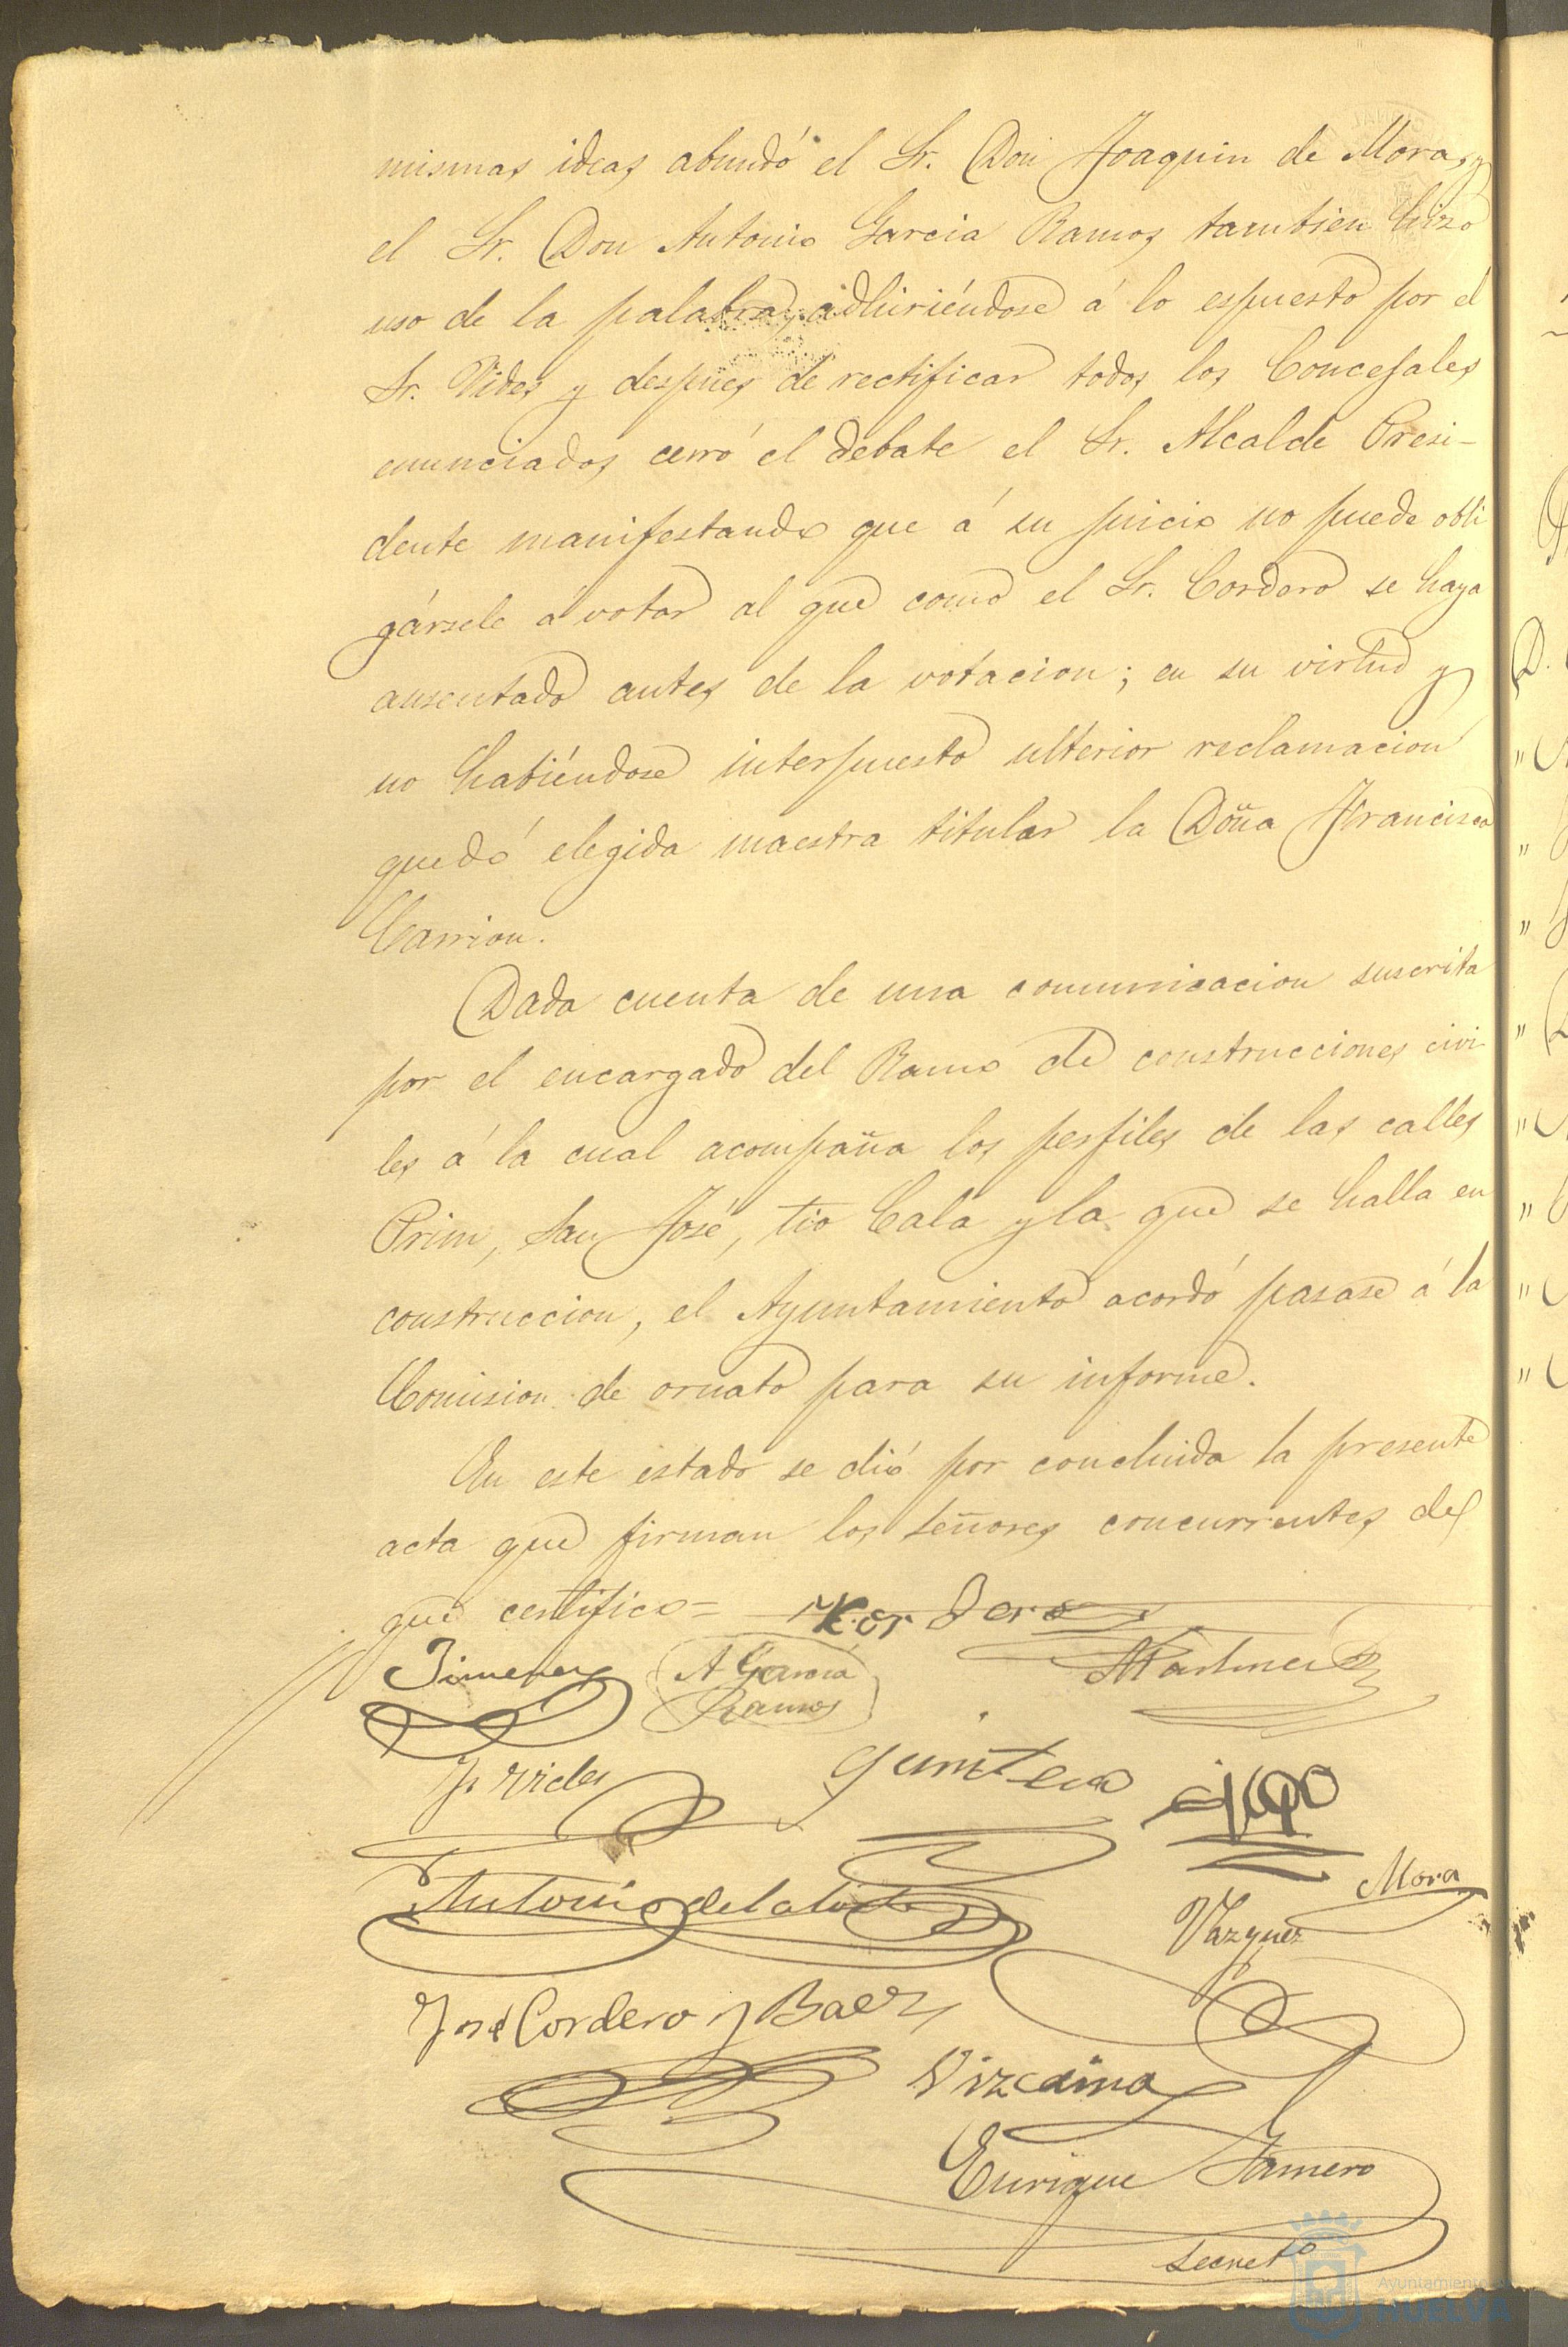 mismas ideas abundó el Sr. Don Joaquin de Mora, y
el Sr. Don Antonio Garcia Ramos tambien hizo
uso de la palabra, adhiriéndose á lo espuesto por el
Sr. Vides y despues de rectificar todos los Concejales
enunciados, cerró el debate el Sr. Alcalde Presi-
dente manifestando que á su juicio no puede obli
gársele á votar al que como el Sr. Cordero se haya
ausentado antes de la votacion; en su virtud y
no habiéndose interpuesto ulterior reclamacion
quedó elegida maestra titular la Doña Francisca
Carrion.
Dada cuenta de una comunicacion suscrita
por el encargado del Ramo de construcciones civi-
les á la cual acompaña los perfiles de las calles
Prim, San José, tio Cala y la que se halla en
construccion, el Ayuntamiento acordó pasase á la
Comision de ornato para su informe.
En este estado se dió por concluida la presente
acta que firman los señores concurrentes de
que certifico=
Jimenez A Garcia
Ramos
Martinez
Vides
Quintero
Mora
Antonio de la
Vazquez
José Cordero y Baez
Vizcaino
Enrique
Secretº
Ayuntamiento de
HUELVA